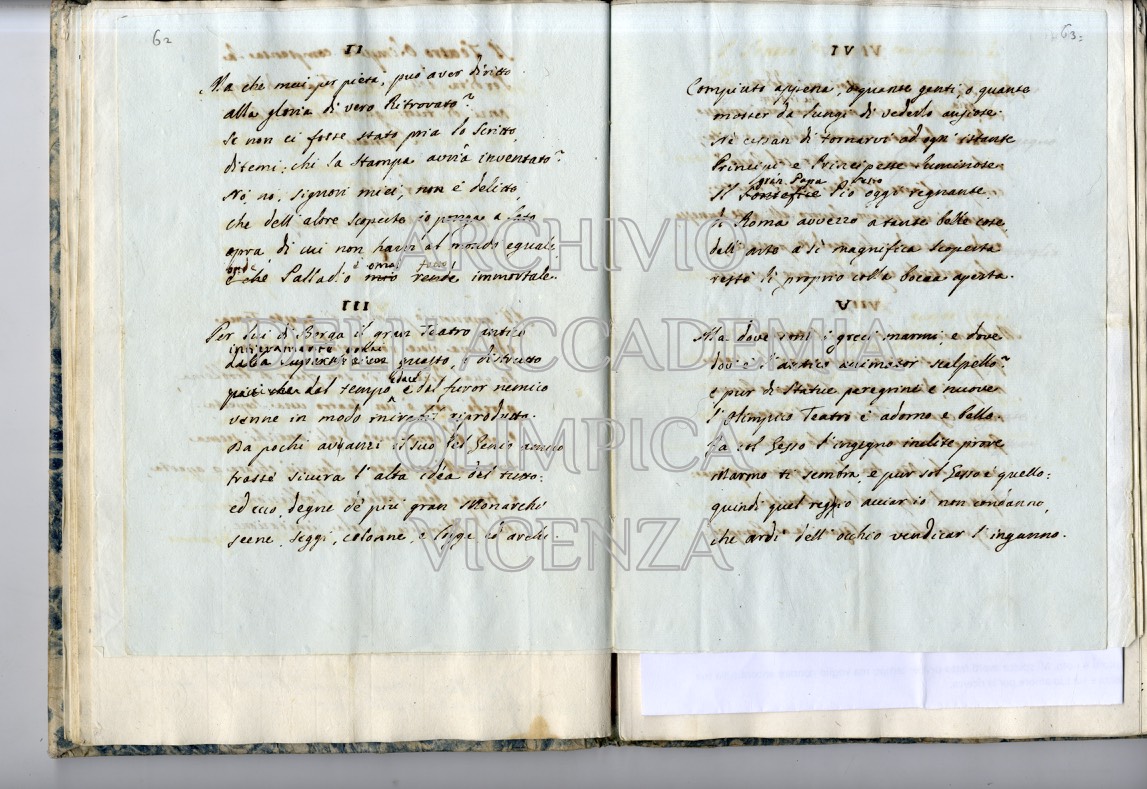 62
II
Ma che mai per pietà, può aver diritto
alla gloria di vero Ritrovato?
Se non ci fosse stato pria lo Scritto
ditemi: chi la Stampa avria inventato?
Nò, nò, Signori miei, non è delitto,
che dell' altre scoperte io ponga a lato
opra, di cui non havvi al mondo eguali
ond' è omai
e che Palladio rende immortale.
III
Per lui di Berga il gran Teatro antico
interamente
dalla guasto, e distrutto
edace
più che dal tempo e dal furor nemico
venne in modo riprodutto.
Da pochi avvanzi il suo bel Genio amico
trasse sicura l' alta idea del tutto:
ed ecco degne de' più gran Monarchi
scene, seggi, colonne, e logge ed archi.
63
VI
Compiuto appena, o quante genti, o quante
mosser da lungi di vederlo ansiose.
Nè cessan di tornarvi ad ogni istante
Principi e Principesse luminose.
gran Papa
Il Pontefice Pio oggi regnante
di Roma avvezzo a tante belle cose
dell' arte a sì magnifica scoperta
restò lì proprio colla bocca aperta.
VII
Ma dove sono i greci marmi e dove
dov' è l' antico animator scalpello?
e pur di Statue peregrine e nuove
l' Olimpico Teatro è adorno e bello.
Fa col Gesso l' ingegno inclite prove
Marmo ti sembra, e pur sol Gesso è quello:
quindi quel reggio acciar io non condanno,
che ardì dell' occhio vendicar l' inganno.
ARCHIVIO
DELL'ACCADEMIA
OLIMPICA
VICENZA